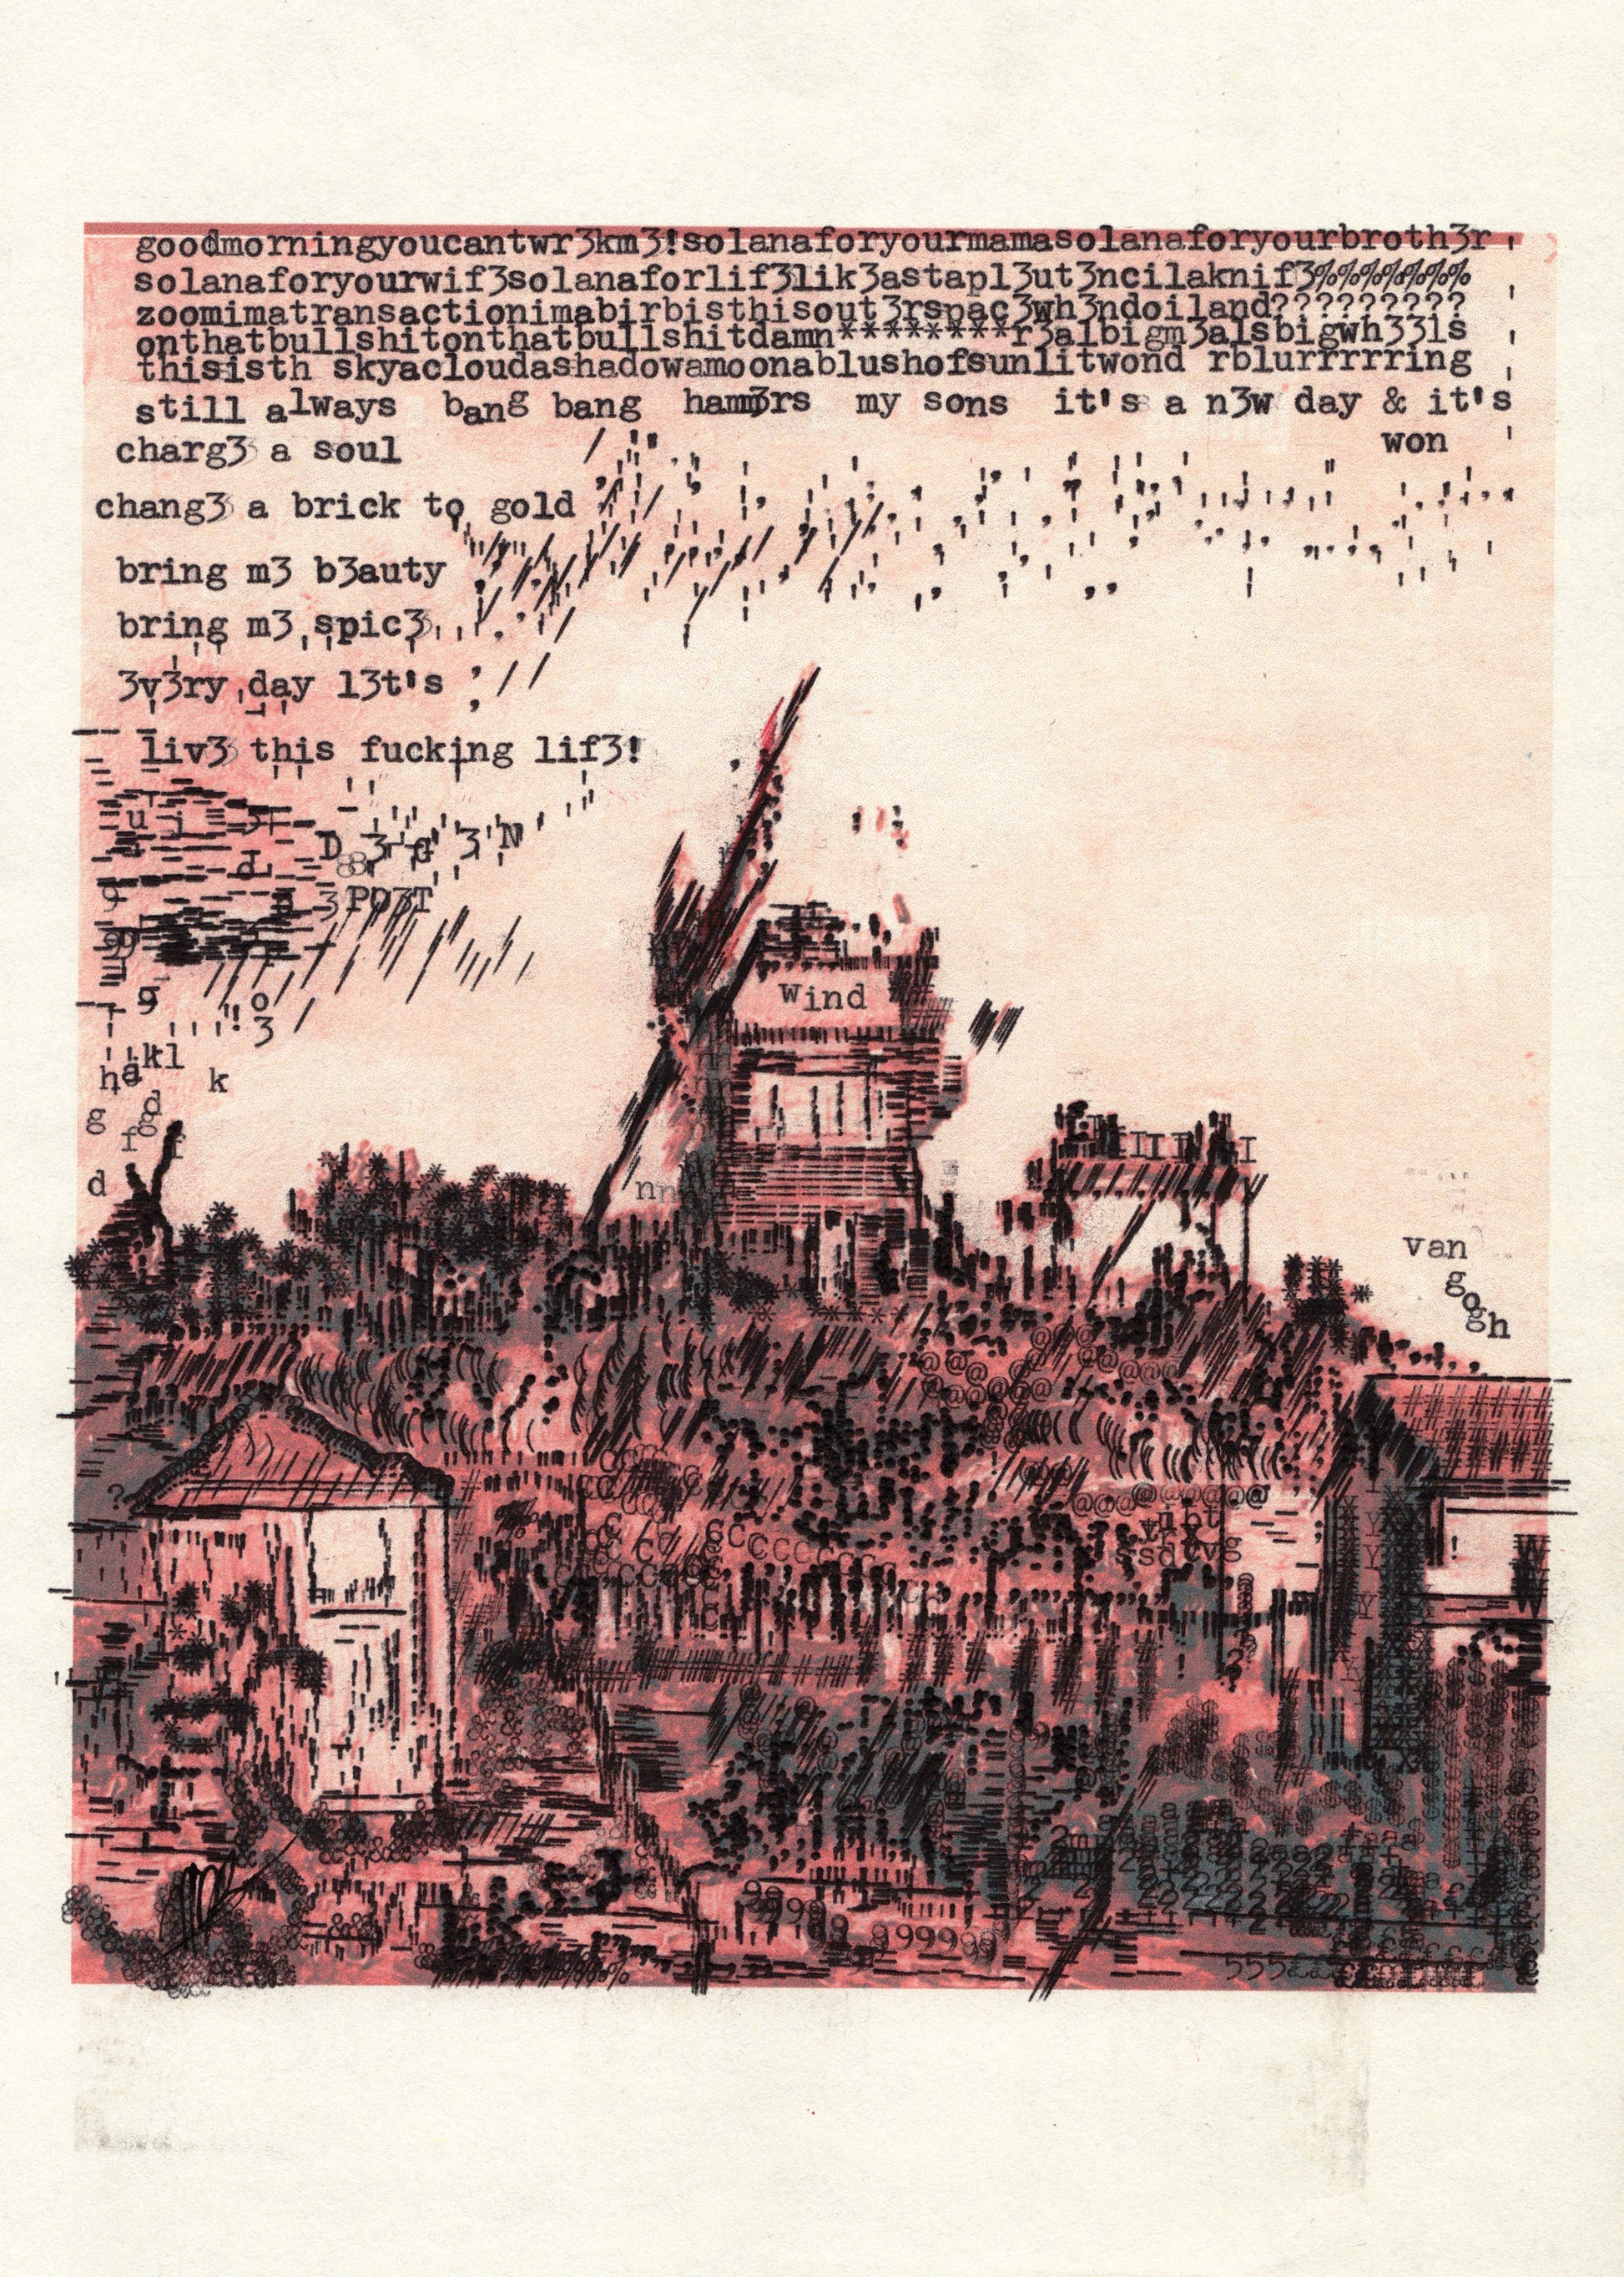 goodmorningyoucantwr3km3!solanaforyourmamasolanaforyourbroth3r
solanaforyourwif3solanaforlif3lik3astapl3ut3ncilaknif3%%%%%%%
zoomimatransactionimabirbisthisout3rspac3wh3ndoiland?????????
onthatbullshitonthatbullshitdamn********r3albigm3alsbigwh33ls
thisisth skyacloudashadowamoonablushofsunlitwond rblurrrrring
still always bang bang hamm3rs my sons it's a n3w day & it's
won
charg3 a soul
chang3 a brick to gold
bring m3 b3auty
bring m3 spic3
3v3ry day l3t's
liv3 this fucking lif3!
D 3 G 3 N
PO3T
wind
van
gogh